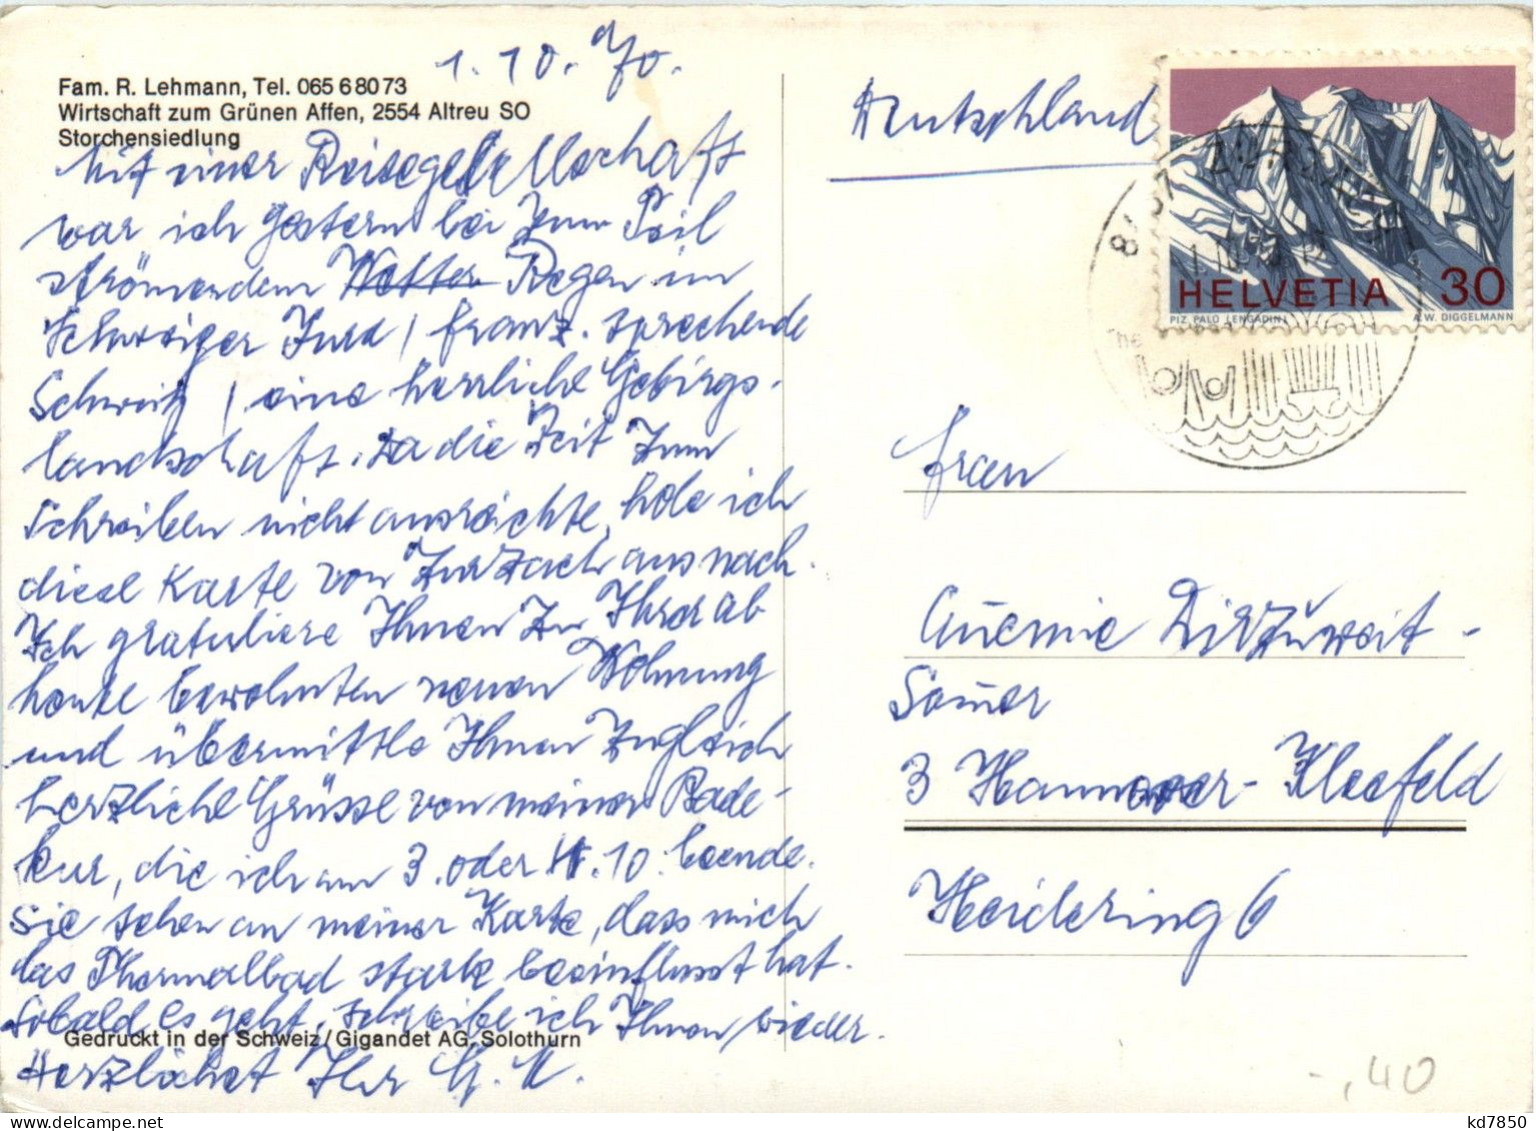 Fam. R. Lehmann, Tel. 065 6 80 73
Wirtschaft zum Grünen Affen, 2554 Altreu SO
Storchensiedlung
1. 10. 70.
Mit einer Reisegesellschaft
war ich gestern bei zum Teil
strömendem Wetter Regen im
Schweizer Jura / franz. sprechende
Schweiz / eine herrliche Gebirgs-
landschaft. Da die Zeit zum
Schreiben nicht ausreichte, hole ich
diese Karte von Zurzach aus nach.
Ich gratuliere Ihnen zu Ihrer ab
heute bewohnten neuen Wohnung
und übermittle Ihnen zugleich
herzliche Grüsse von meiner Bade-
kur, die ich am 3. oder 4. 10. beende.
Sie sehen an meiner Karte, dass mich
das Thermalbad stark beeinflusst hat.
Sobald es geht, schreibe ich Ihnen wieder.
Gedruckt in der Schweiz/Gigandet AG, Solothurn
Herzlichst Ihr
Deutschland
HELVETIA 30
PIZ PALÜ (ENGADIN) A.W. DIGGELMANN
Frau
Dirzuweit -
Sauer
3 Hannover-Kleefeld
Heidering 6
-,40
kd7850